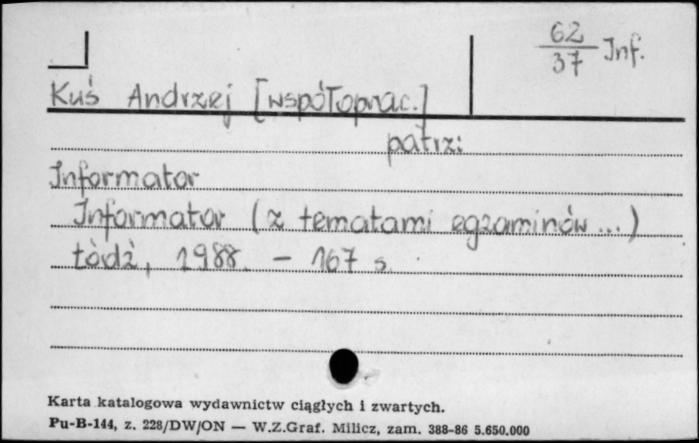 62
37 Inf.
Kuś Andrzej [współoprac.]
patrz:
Informator
Informator (z tematami egzaminów...)
Łódź, 1988. - 167 s.
Karta katalogowa wydawnictw ciągłych i zwartych.
Pu-B-144, z. 228/DW/ON — W.Z.Graf. Milicz, zam. 388-86 5.650.000